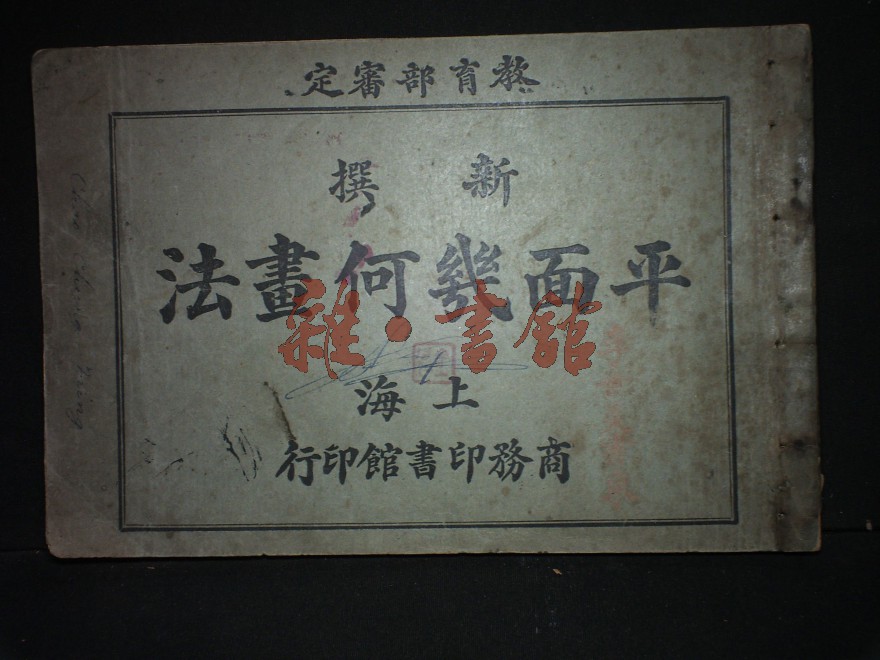 教育部審定
新撰
平面幾何畫法
雜·書館
上海
商務印書館印行